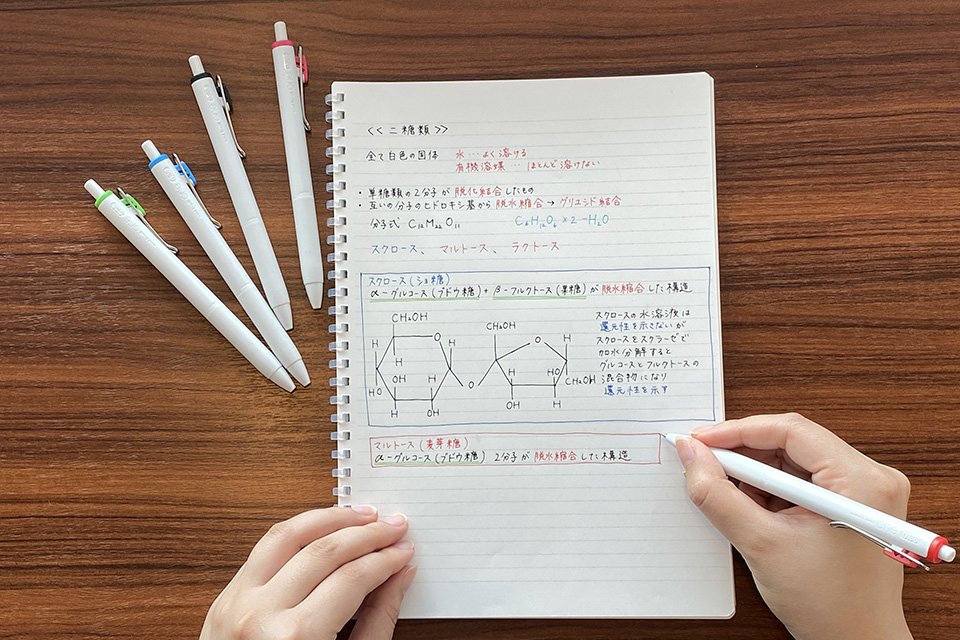 << 二糖類 >>
全て白色の固体 水…よく溶ける
有機溶媒‥ほとんど溶けない
・単糖類の2分子が脱化結合したもの
・互いの分子のヒドロキシ基から脱水縮合→グリコシド結合
分子式 C12H22O11 C6H12O6×2-H2O
スクロース、マルトース、ラクトース
スクロース(ショ糖)
α-グルコース(ブドウ糖)+β-フルクトース(果糖)が脱水縮合した構造
スクロースの水溶液は
還元性を示さないが
スクロースをスクラーゼで
加水分解すると
グルコースとフルクトースの
混合物になり
還元性を示す
CH2OH
O
H
H
H
H
OH
H
HO
H
OH
O
CH2OH
O
H
HO
CH2OH
OH
H
マルトース(麦芽糖)
α-グルコース(ブドウ糖) 2分子が脱水縮合した構造